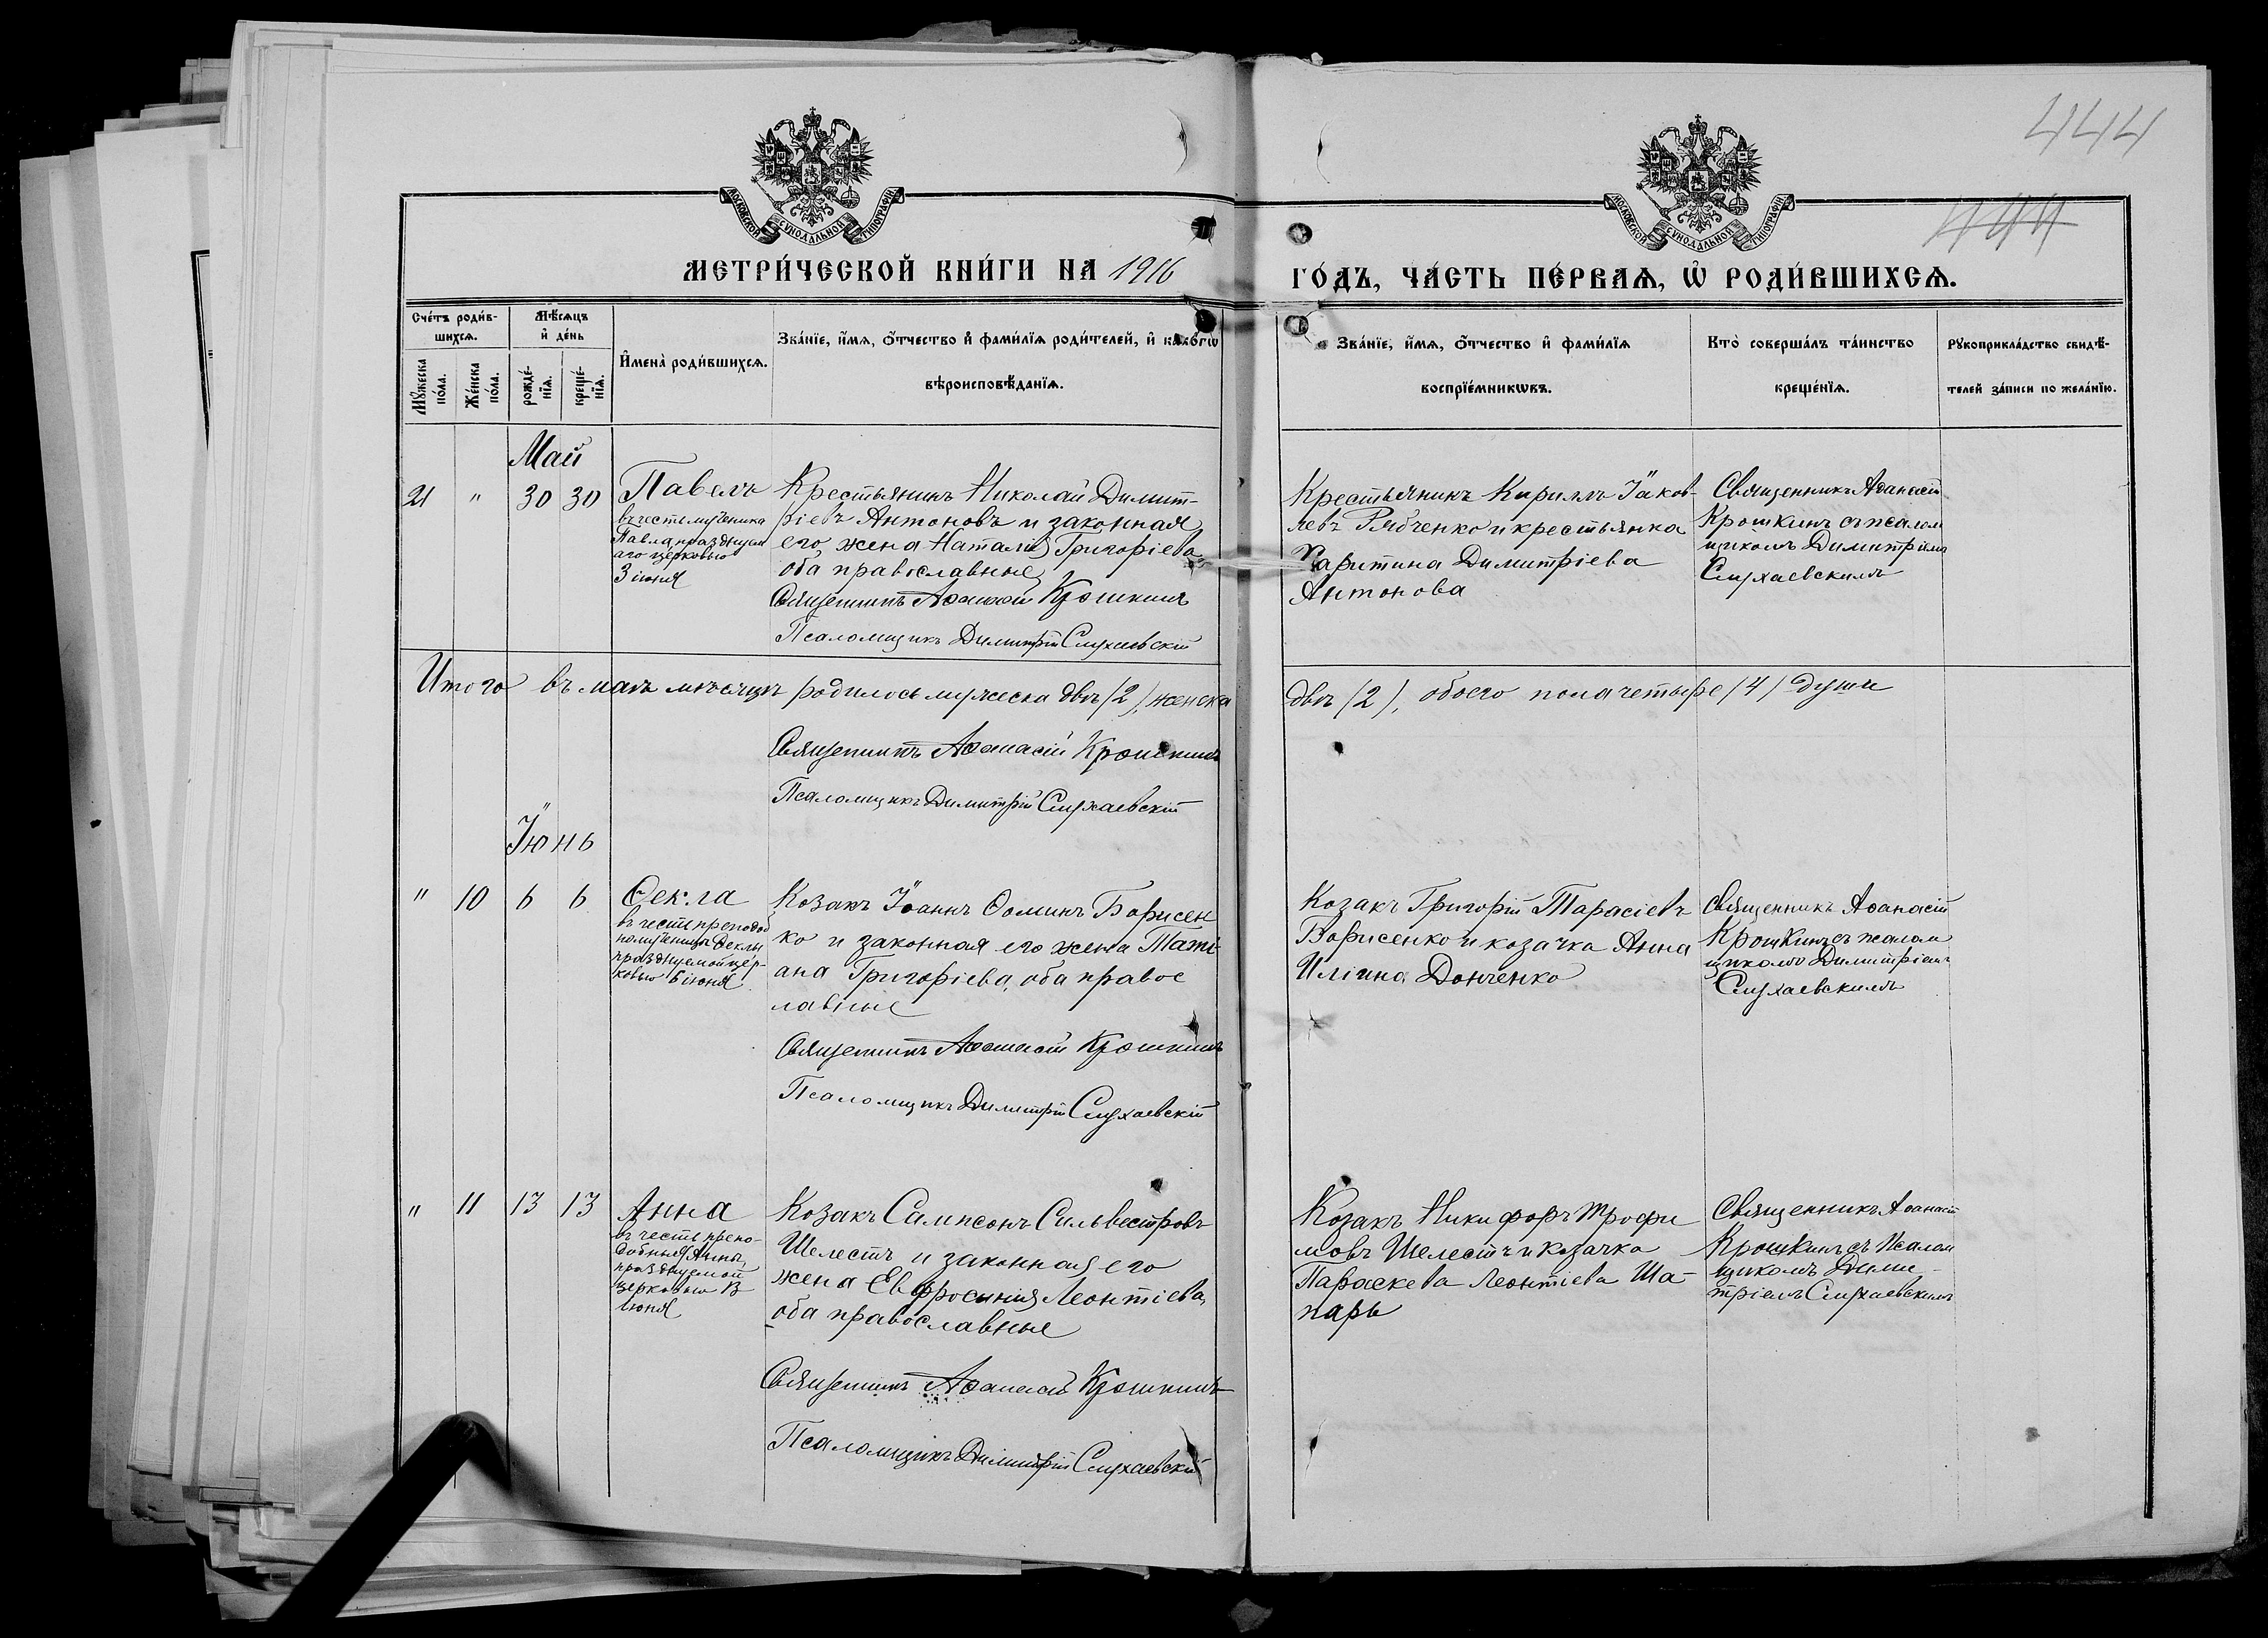 444
444
МОСКОВСКОЙ СѴНОДАЛЬНОЙ ТИПОГРАФІИ
МОСКОВСКОЙ СѴНОДАЛЬНОЙ ТИПОГРАФІИ
МЕТРИ́ЧЕСКОЙ КНИ́ГИ НА 1916 ГО́ДЪ, ЧА́СТЬ ПЕ́РВАѦ, Ѡ҆ РОДИ́ВШИХСѦ.
Сче́тъ роди́в-
шихсѧ.
Мѣ́сѧцъ
и҆ де́нь
Мꙋ́жеска
по́ла.
Же́нска
по́ла.
рожде́-
нїѧ.
креще́-
нїѧ.
И҆мена̀ роди́вшихсѧ.
Зва́нїе, и҆́мѧ, ѻ҆́тчество и҆ фами́лїѧ роди́телей, и҆ како́гѡ
вѣроисповѣ́данїѧ.
Зва́нїе, и҆́мѧ, ѻ҆́тчество и҆ фами́лїѧ
воспрїе́мникѡвъ.
Кто̀ соверша́лъ та́инство
креще́нїѧ.
Рꙋкоприкла́дство свидѣ́-
телей за́писи по жела́нїю.
Май
21 " 30 30
Павелъ
въ честь мученика
Павла празднуем
аго церковью
3 июня
Крестьянинъ Николай Димит-
ріевъ Антоновъ и законная
его жена Наталія Григоріева
оба православные
Священникъ Аѳанасій Крошкинъ
Псаломщикъ Димитрій Слухаевскій
Крестьянинъ Кириллъ Іаков-
левъ Рябченко и крестьянка
Харитина Димитріева
Антонова
Священникъ Аѳанасій
Крошкинъ съ псалом
щикомъ Димитріемъ
Слухаевскимъ
Итого въ маѣ мѣсяцѣ родилось мужеска два (2), женска
двѣ (2), обоего пола четыре (4) души
Священникъ Аѳанасій Крошкинъ
Псаломщикъ Димитрій Слухаевскій
Іюнь
" 10 6 6
Ѳекла
въ честь преподоб
номученицы Ѳеклы
празднуемой цер-
ковью 6 июня
Козакъ Іоаннъ Ѳоминъ Борисен
ко и законная его жена Тати
ана Григоріева, оба правос
лавные
Священникъ Аѳанасій Крошкинъ
Псаломщикъ Димитрій Слухаевскій
Козакъ Григорій Тарасіевъ
Борисенко и козачка Анна
Иліина Донченко
Священникъ Аѳанасій
Крошкинъ съ псалом
щикомъ Димитріемъ
Слухаевскимъ
" 11 13 13
Анна
въ честь препо-
добныя Анны,
празднуемой
церковью 13
июня
Козакъ Сампсонъ Сильвестровъ
Шелестъ и законная его
жена Евфросинія Леонтіева,
оба православные
Священникъ Аѳанасій Крошкинъ
Псаломщикъ Димитрій Слухаевскій
Козакъ Никифоръ Трофи
мовъ Шелестъ и козачка
Параскева Леонтіева Ша-
парь
Священникъ Аѳанасій
Крошкинъ съ псалом
щикомъ Дими-
тріемъ Слухаевскимъ